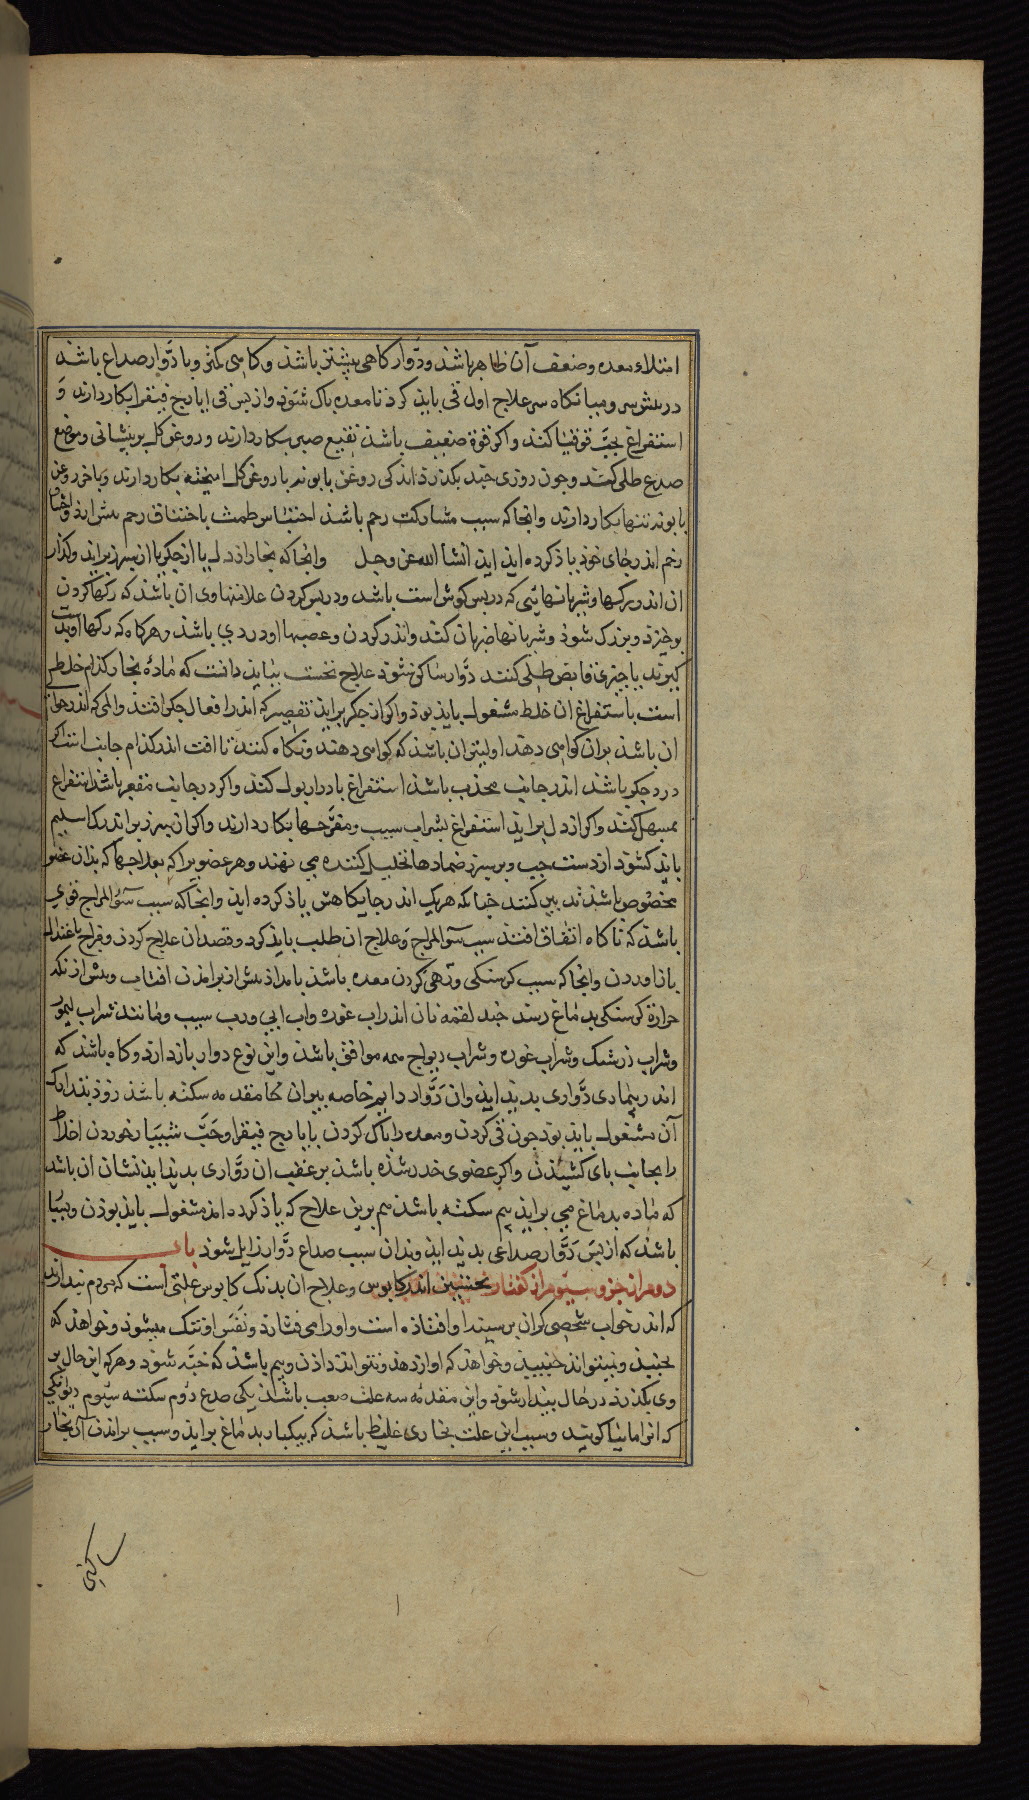 امتلاء معده وضعف آن ظاهر باشذ ودوار کاهی بیشتر باشذ وکاهی کمتر وبا دوار صداع باشذ
در پیش سر ومیانکاه سر علاج اول قی بایذ کرد تا معده پاک شوذ واز پس قی ایارج فیقرا بکار دارند و
استفراغ بحب قوقیا کنند واکر قوة ضعیف باشذ نقیع صبر بکار دارند وروغن کل بر پیشانی وموضع
صداع طلی کنند وجون روزی جند بکذرد اندکی روغن بابونه با روغن کل امیخته بکار دارند وباخر روغن
بابونه تنها بکار دارند وانجا که سبب مشارکت رحم باشذ احتباس طمث یا اختناق رحم
رحم اندر جای خوذ یاذ کرده ایذ انشا الله عز وجل وانجا که بخار از دل یا از جکر یا از سپرز براید وکذار
ان اندر رکها وشریانهایی که در پس کوش است باشد ودر پس کردن علامتهاوی ان باشذ که رکها کردن
برخیزد وبزرک شوذ وشریانها ضربان کند واندر کردن وعصبها او دردی باشذ وهرکاه که رکها او
کیرند یا چیزی قابض طلی کنند دوار ساکن شوذ علاج نخست ببایذ دانست که مادۀ بخار کذام خلط
است باستفراغ ان خلط مشغول بایذ بوذ واکر از جکر برایذ تقصیر که اندر افعال جکر افتد والمی که اندر حوالی
ان باشذ بران کواهی دهد اولیتر ان باشذ که کواهی دهند ونکاه کنند تا افت اندر کذام جانب است اکر
درد جکر باشذ اندر جانب محذب باشذ استفراغ بادرار بول کنند واکر در جانب مقعر باشذ استفراغ
بمسهل کنند واکر از دل برایذ استفراغ بشراب سیب ومفرحها بکار دارند واکر از سپرز براید رک اسیلم
بایذ کشود از دست جپ وبر سپرز ضمادها تحلیل کننده می نهند وهر عضو را که بعلاجها که بذان عضو
مخصوص باشذ تدبیر کنند جنانکه هر یک اندر جایکاهش یاذ کرده ایذ وانجا که سبب سوء المزاج قوی
باشذ که ناکاه اتفاق افتد سبب سوء المزاج وعلاج ان طلب بایذ کرد وقصد ان علاج کردن ومزاج باعتدال
باز اوردن وانجا که سبب کرسنکی وتهی کردن معده باشذ بامداذ پیش از برامذن افتاب وپیش از انکه
حرارة کرسنکی بدماغ رسد جند لقمه نان اندر اب غوره واب ابی ورب سیب ومانند شراب لیمو
وشراب زرشک وشراب غوره وشراب ریواج همه موافق باشذ واین نوع دوار باز دارد وکاه باشذ که
اندر بیماری دواری بدید ایذ وان دوار دایم خاصه پیران را مقدمه سکته باشذ زوذ بتدارک
آن مشغول بایذ بوذ جون قی کردن ومعده را پاک کردن بایارج فیقرا وحب شبیار خوردن اخلاط
را بجانب پای کشیذن واکر عضوی خدر شذه باشذ بر عقب ان دواری بدید ایذ نشان ان باشذ
که ماده بدماغ می برایذ بیم سکته باشذ هم برین علاج که یاذ کرده امذ مشغول بایذ بوذن وبسیار
باشذ که از پس دوار صداعی بدید ایذ وبذان سبب صداع دوار زایل شوذ باب
دوم از جزو سیوم از کفتار نخستین اندر کابوس وعلاج ان بدانک کابوس علتی است که مردم پندارد
که اندر خواب شخصی کران بر سینه او افتاذه است واو را می فشارد ونفس او تنک میشوذ وخواهذ که
بجنبذ ونتواند جنبیذ وخواهذ که اواز دهذ ونتواند داذن وبیم باشذ که خبه شوذ وهرکه این حال بر
وی بکذرد در حال بیدار شوذ واین مقدمه سه علت صعب باشذ یکی صرع دوم سکته سیوم دیوانکی
که انرا مانیا کویند وسبب این علت بخاری غلیظ باشذ که بیکبار بدماغ برایذ وسبب برامذن آن بخار
ساکنی